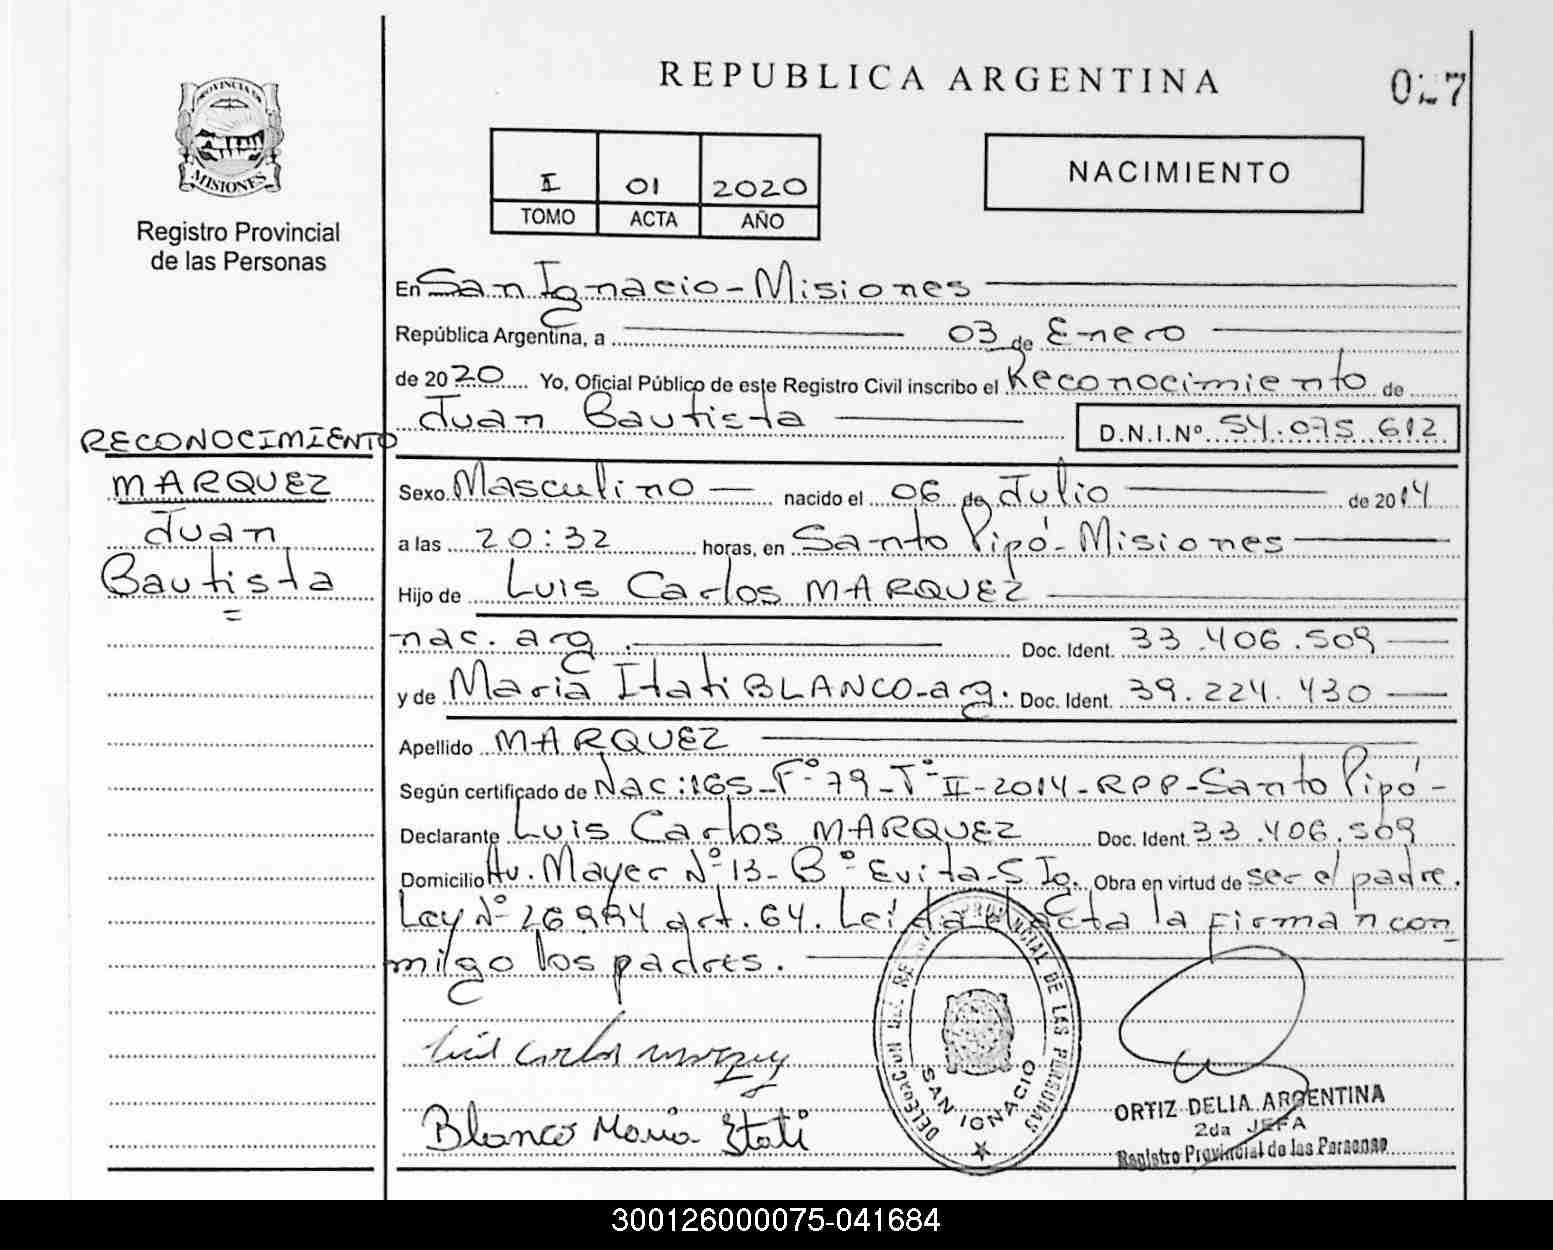 PROVINCIA DE
MISIONES
Registro Provincial
de las Personas
REPUBLICA ARGENTINA
I 01 2020
TOMO ACTA AÑO
NACIMIENTO
En San Ignacio - Misiones
República Argentina, a 03 de Enero
de 2020 Yo, Oficial Público de este Registro Civil inscribo el Reconocimiento de
Juan Bautista D.N.I.Nº 54.075.612
RECONOCIMIENTO
MARQUEZ
Juan
Bautista
Sexo Masculino nacido el 06 de Julio de 2014
a las 20:32 horas, en Santo Pipó - Misiones
Hijo de Luis Carlos MARQUEZ
nac. arg. Doc. Ident. 33.406.509
y de Maria Itati BLANCO - arg. Doc. Ident. 39.224.430
Apellido MARQUEZ
Según certificado de Nac: 165 - Fº 79 - Tº II - 2014 - RPP - Santo Pipó -
Declarante Luis Carlos MARQUEZ Doc. Ident. 33.406.509
Domicilio Av. Mayer Nº 13 - Bº Evita - S. Ig. Obra en virtud de ser el padre.
Ley Nº 26994 art. 64. Leída el acta la firman con
migo los padres.
Luis Carlos Marquez
Blanco Maria Itati
DELEGACION DEL REGISTRO PROVINCIAL DE LAS PERSONAS
SAN IGNACIO
ORTIZ DELIA ARGENTINA
2da JEFA
Registro Provincial de las Personas
300126000075-041684